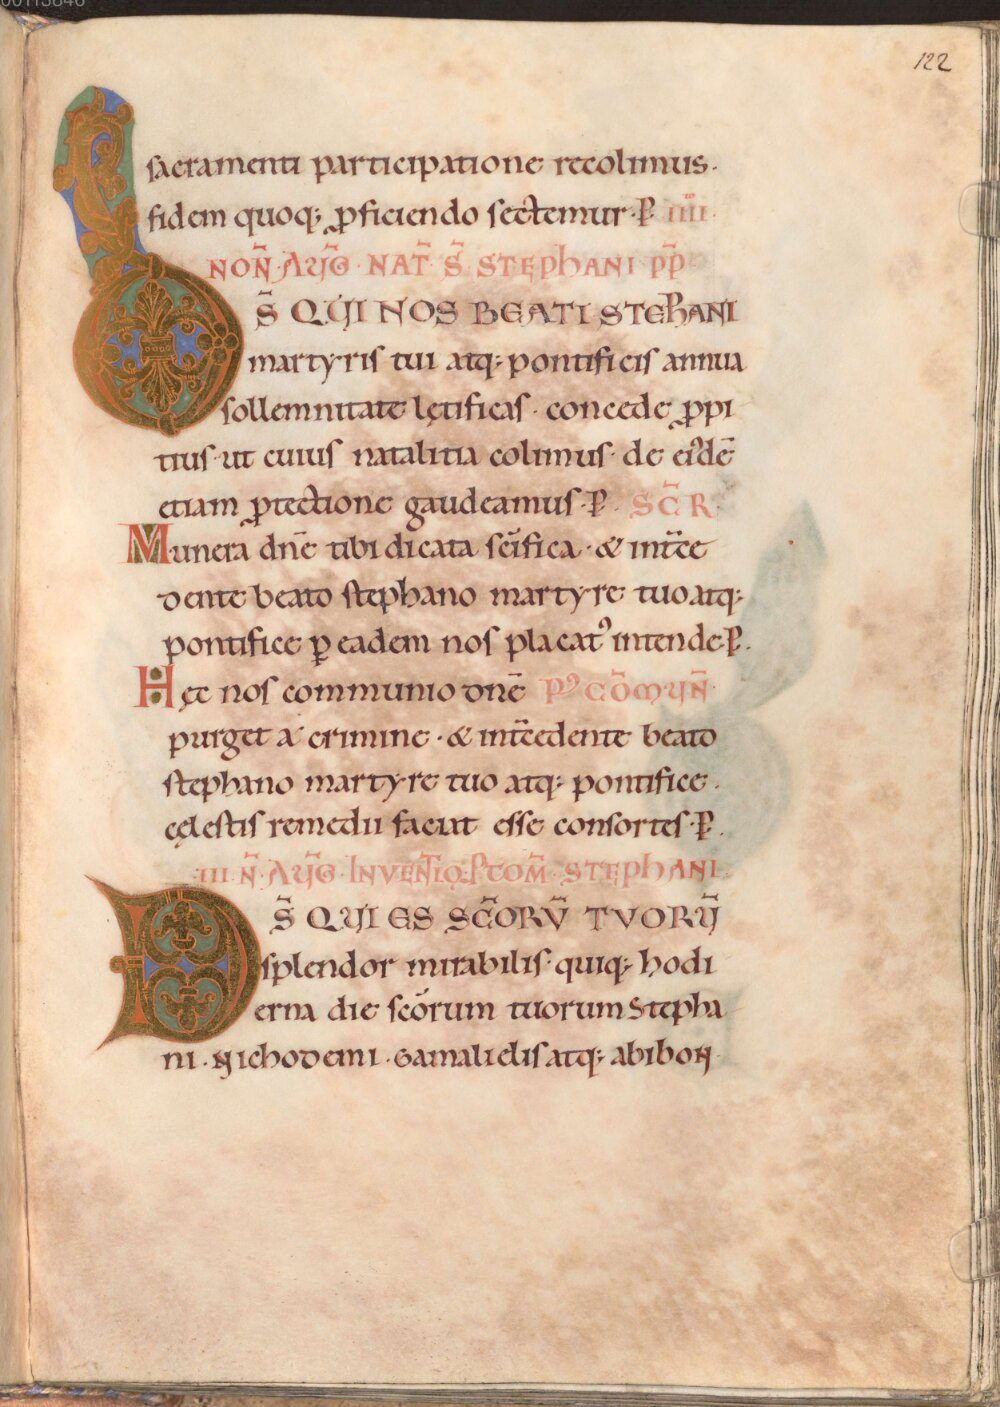 122
sacramenti participatione recolimus.
fidem quoq; ꝓficiendo sectemur. P̄ IIII.
NOÑ. AUḠ. NAT̄. S̄. STEPHANI PP̄
D S̄ QUI NOS BEATI STEPHANI
martyris tui atq; pontificis annua
sollemnitate lętificas. concede ꝓpi
tius. ut cuius natalitia colimus. de eiusdē
etiam ꝓtectione gaudeamus. P̄. SEC̄R.
Munera dn̄e tibi dicata scīfica. & intc̄e
dente beato stephano martyre tuo atq;
pontifice ꝑ eadem nos placatꝰ intende. P̄.
Hęc nos communio dn̄e Pꝰ CŌMUÑ
purget a crimine. & intc̄edente beato
stephano martyre tuo atq; pontifice.
cęlestis remedii faciat esse consortes. P̄.
III. Ñ. AUḠ. INVENTIO PTOM̄. STEPHANI.
D S̄ QUI ES SC̄ORV̄ TVORŪ
splendor mirabilis. quiq; hodi
erna die scōrum tuorum Stepha
ni. Nichodemi. Gamalielis atq; abibon